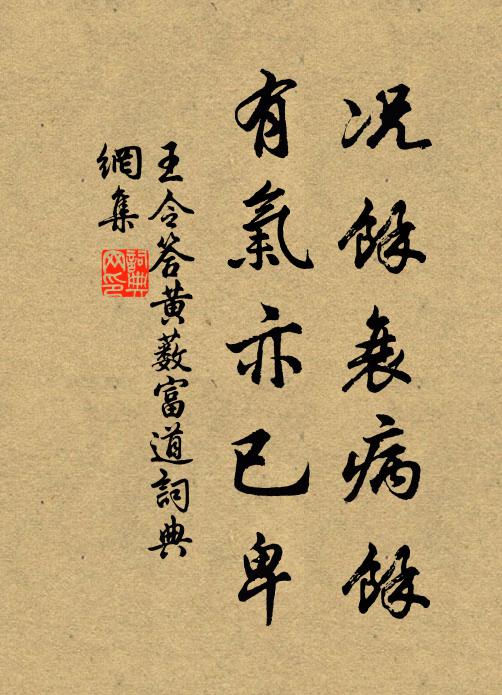 况餘衰病餘
有氣亦已卑
王令答黃薮富道詞典
網集
詞典
网印